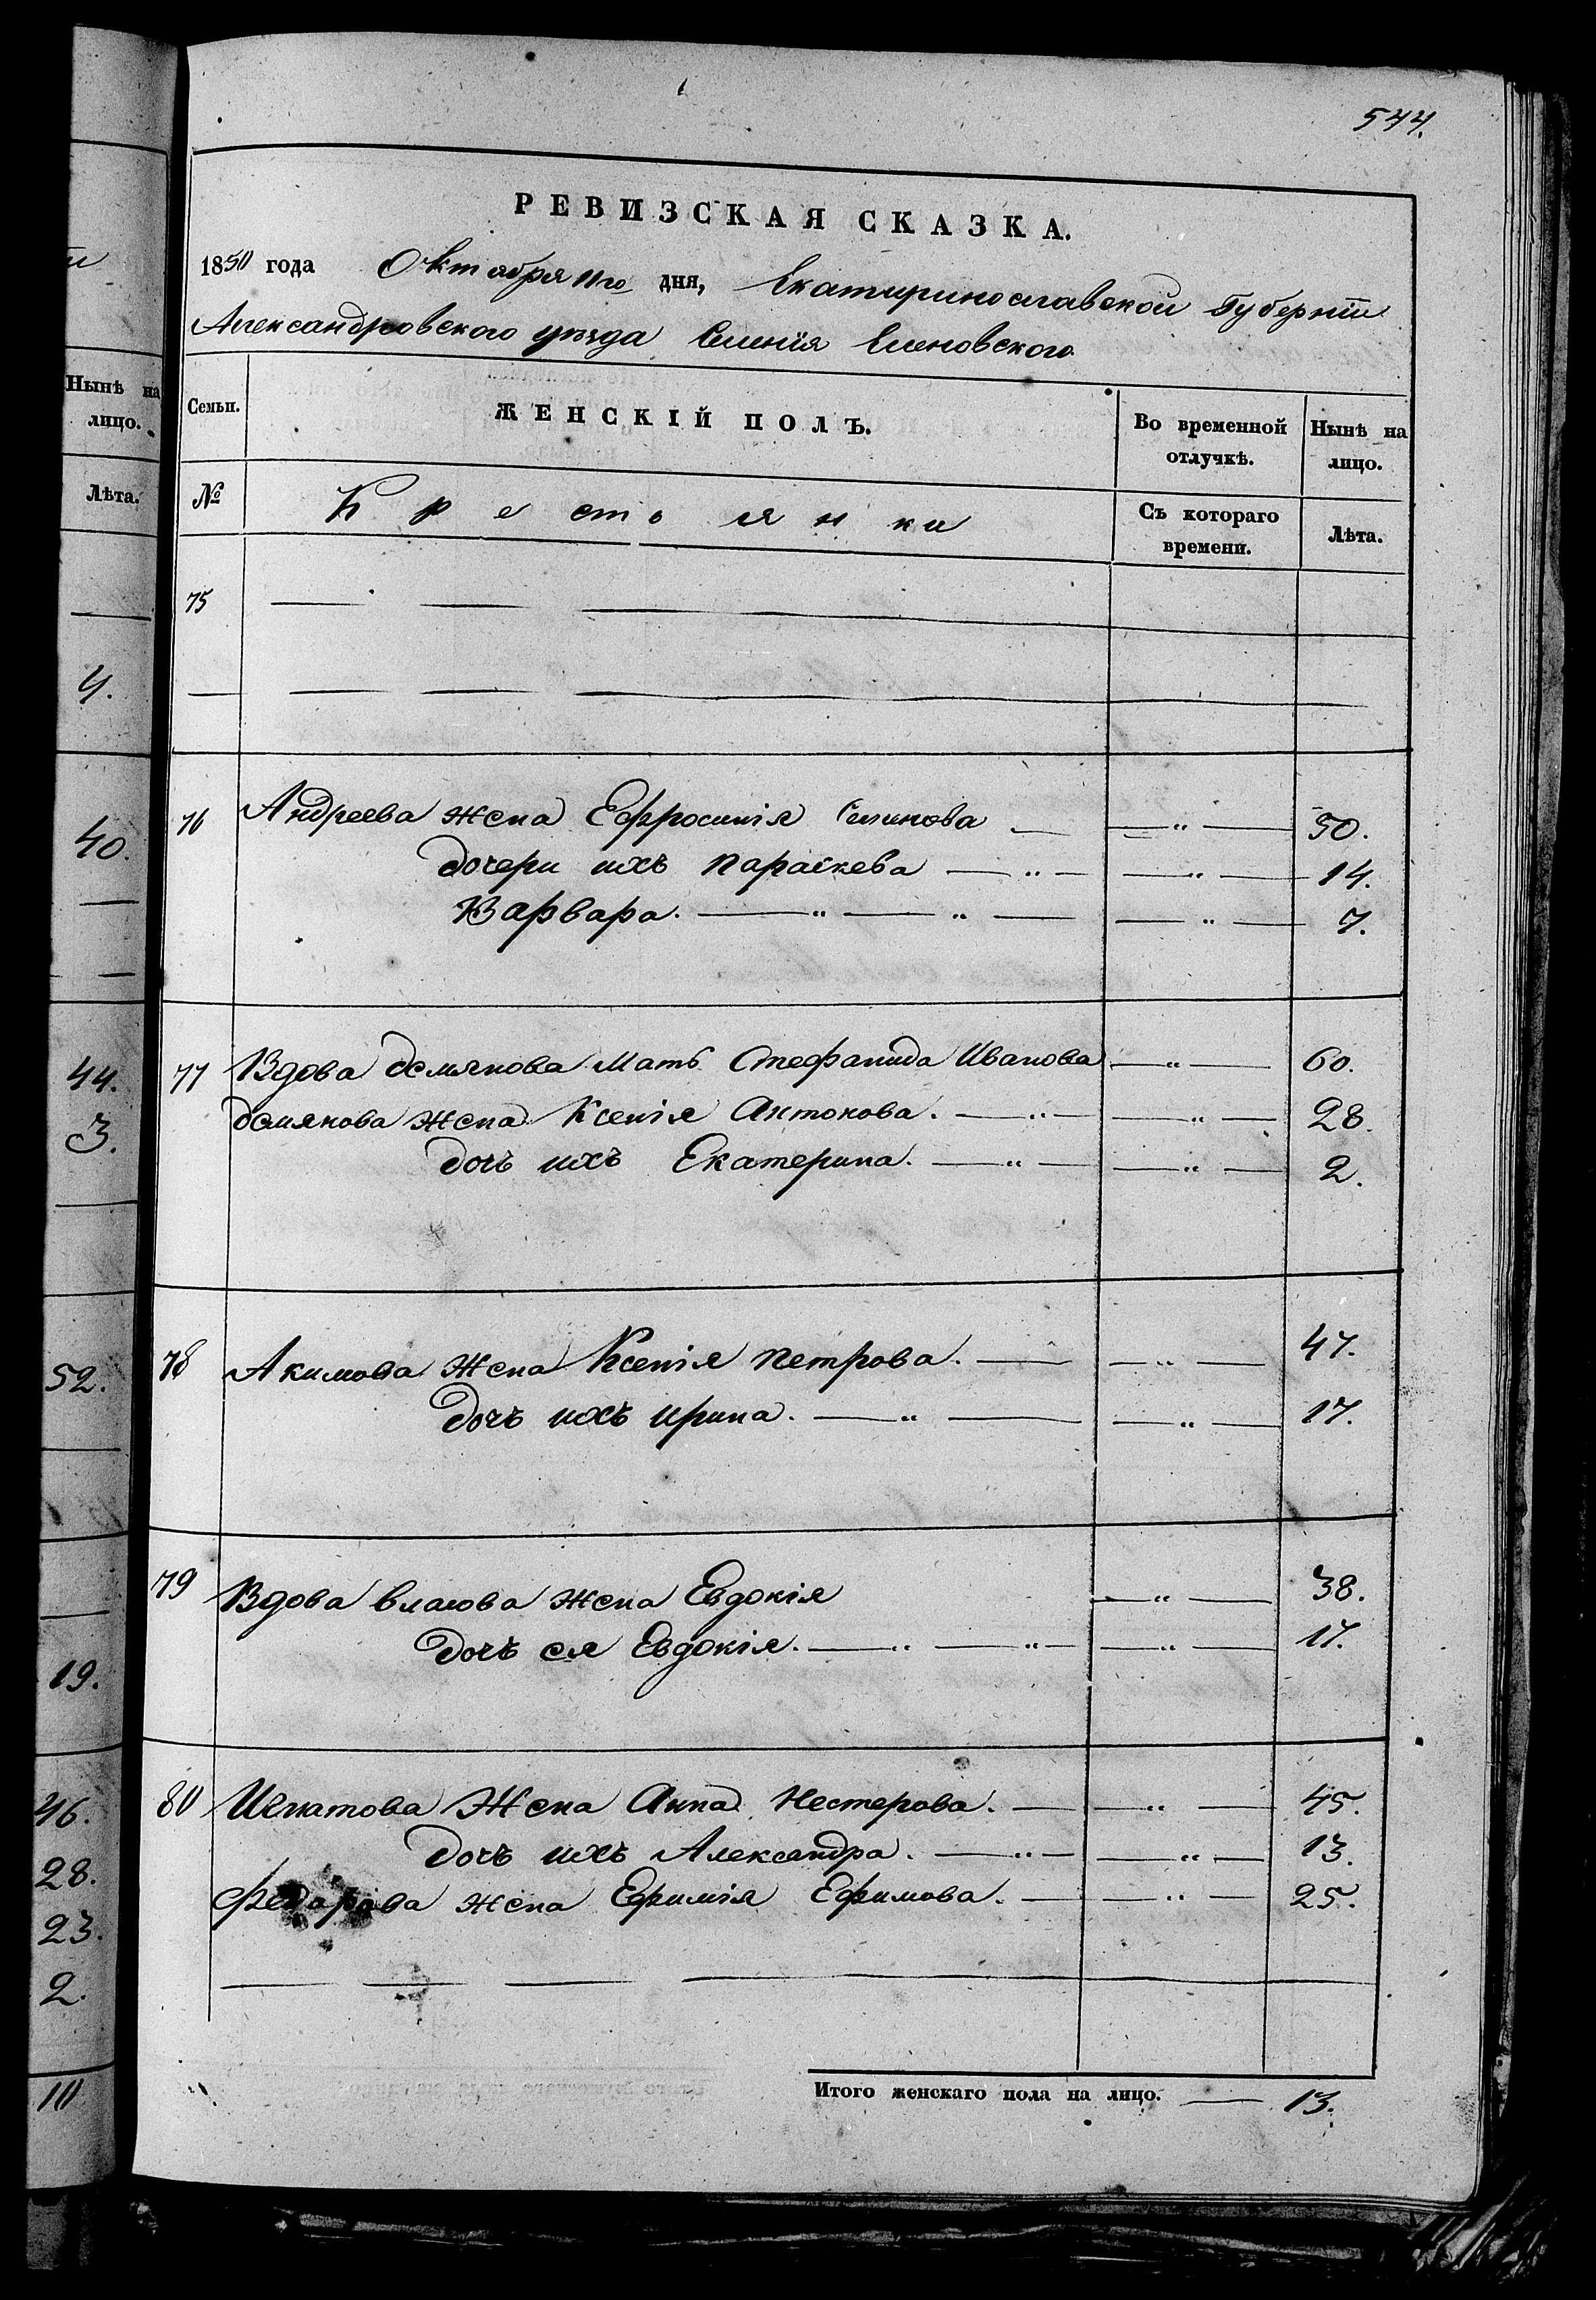 544.
РЕВИЗСКАЯ СКАЗКА.
1850 года Октября 11го дня, Екатеринославской Губерніи
Александровского уѣзда Селенія Еленовского
Семьи.
ЖЕНСКІЙ ПОЛЪ.
Во временной отлучкѣ.
Нынѣ на лицо.
№
Крестьянки
Съ котораго времени.
Лѣта.
75
76 Андреева жена Ефросинія Семинова — " — 50.
дочери ихъ Параскева — " — " — 14.
Варвара. — " — " — " — 7.
77 Вдова демянова Мать Стефанида Иванова — " — 60.
демянова жена Ксенія Антонова. — " — " — 28.
дочь ихъ Екатерина. — " — " — 2.
78 Акимова жена Ксенія Петрова. — " — 47.
дочь ихъ Ирина. — " — " — 17.
79 Вдова власова жена Евдокія — " — 38.
Дочь ея Евдокія. — " — " — " — 17.
80 Игнатова Жена Анна Нестерова. — " — 45.
дочь ихъ Александра. — " — " — 13.
Федарова жена Ефимія Ефимова. — " — 25.
Итого женскаго пола на лицо. — 13.
Нынѣ на
лицо.
Лѣта.
4.
40.
44.
3.
52.
19.
46.
28.
23.
2.
10